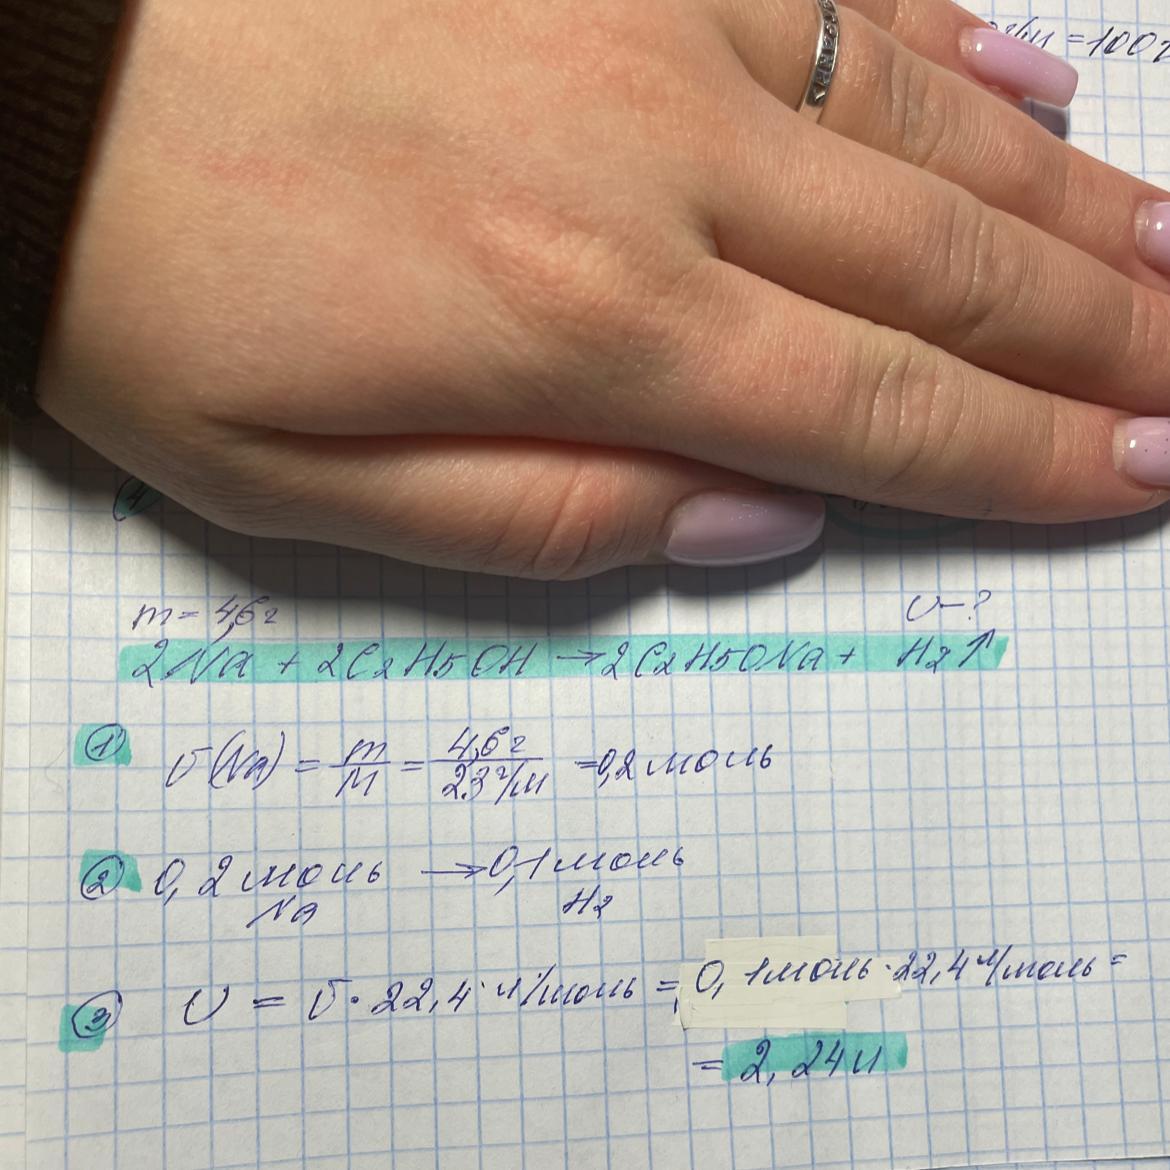 г/м = 100г
4
m = 4,6г υ - ?
2Na + 2C2H5OH → 2C2H5ONa + H2↑
① υ(Na) = m/M = 4,6г/23г/м = 0,2 моль
② 0,2 моль → 0,1 моль
Na H2
③ υ = υ · 22,4 л/моль = 0,1моль · 22,4 л/моль =
= 2,24л